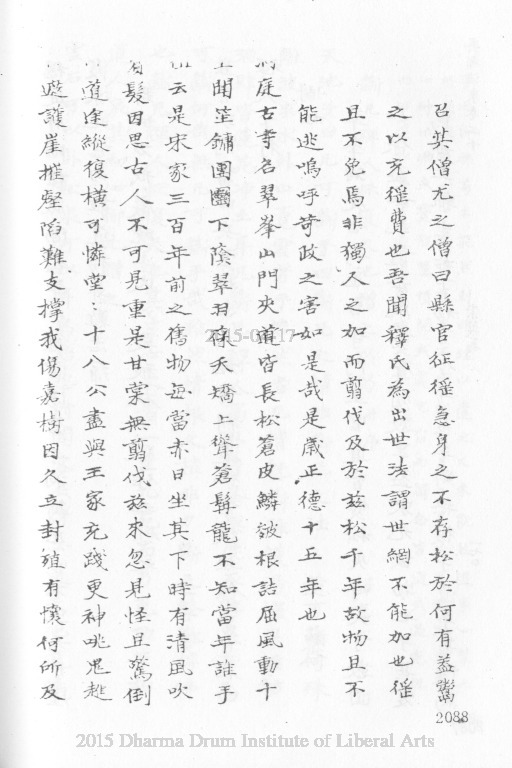 召其僧尤之僧曰縣官征徭急身之不存松於何有益鬻
之以充徭費也吾聞釋氏為出世法謂世網不能加也徭
且不免焉非獨人之加而翦伐及於茲松千年故物且不
能逃嗚呼苛政之害如是哉是歲正德十五年也
洞庭古寺名翠峯山門夾道皆長松蒼皮鱗皴根詰屈風動十
里聞笙鏞團團下蔭翠羽葆夭矯上聳蒼髯龍不知當年誰手
植云是宋家三百年前之舊物每當赤日坐其下時有清風吹
髮因思古人不可見重是甘棠無翦伐茲來忽見怪且驚倒
道途縱復橫可憐堂:十八公盡與王家充踐更神咷鬼趂
遮護崖摧壑陷難支撐我傷嘉樹因久立封殖有懷何所及
2088
2015 Dharma Drum Institute of Liberal Arts